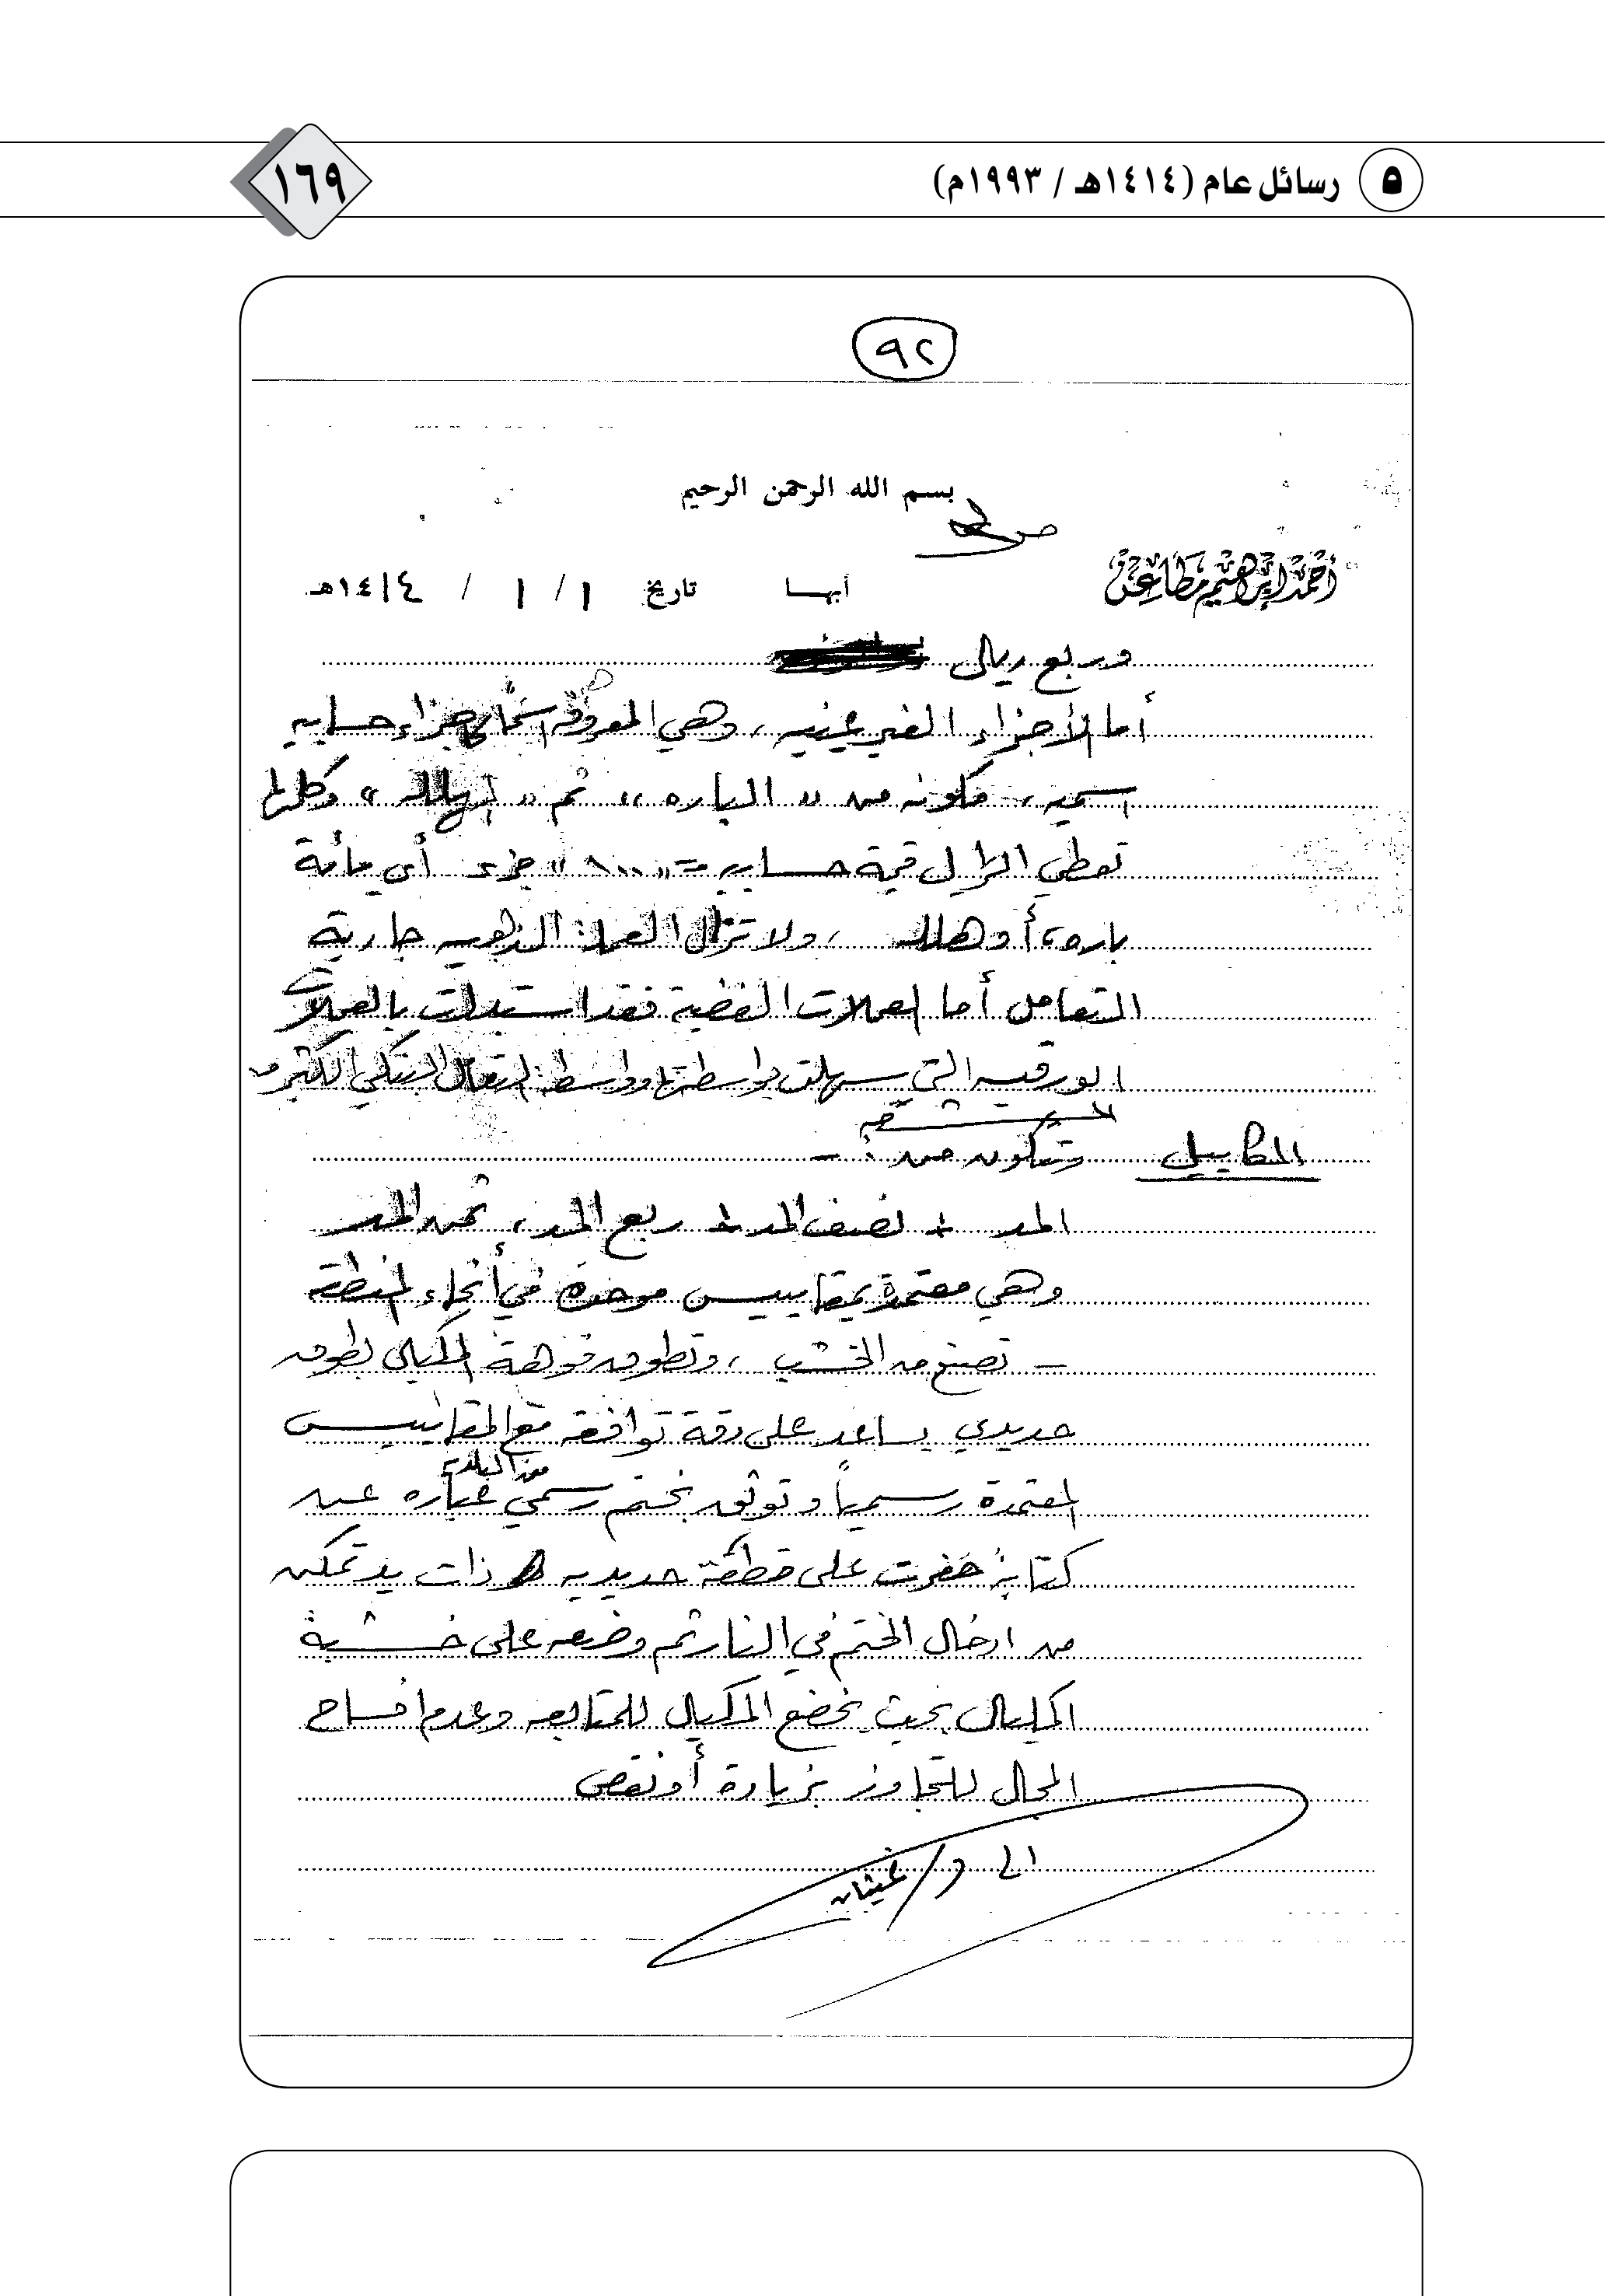 ٥ رسائل عام (١٤١٤هـ / ١٩٩٣م)
١٦٩
٩٢
بسم الله الرحمن الرحيم
أحمد إبراهيم مطاعن
أبها تاريخ ١ / ١ / ١٤١٤هـ
وربع ريال
أما الأجزاء الغير عينيه ، وهي المعروفه أجزاء حسابيه
اسميه ، مكونه من « الباره » ثم « الهلله » وكلها
تعطي الريال قيمة حسابيه = « ١٠٠ » جزء أي مائة
باره ، أو هلله ، ولا تزال العمله الذهبيه جارية
التعامل أما العملات الفضية فقد استبدلت بالعملات
الورقيه التي سهلت بواسطتها وواسطة التعامل البنكي الكثير من
المشقه
المكاييل وتتكون من : -
المد + نصف المد + ربع المد ، ثمن المد
وهي معتمدة بمقاييس موحده في أنحاء المنطقة
- تصنع من الخشب ، وتطوق فوهة المكيال بطوق
حديدي يساعد على دقة توافقه مع المقاييس
المعتمدة رسمياً وتوثق بختم رسمي من البلدية عباره عن
كتابة حفرت على قطعة حديديه ذات يد تمكن
من ادخال الختم في النار ثم وضعه على خشبة
المكيال بحيث يخضع المكيال للمتابعه وعدم افساح
المجال للتجاوز بزيادة أو نقص
الى د/ غيثان